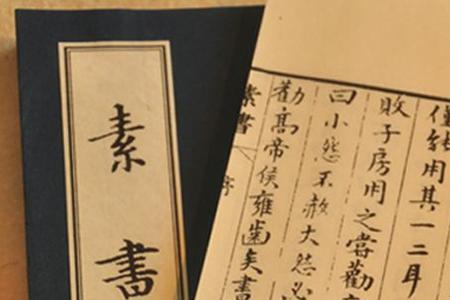 素書
用其一二耳
敗子房用之嘗勸
曰小怨不赦大怨必
勸高帝侯雍齒矣書
素書 序